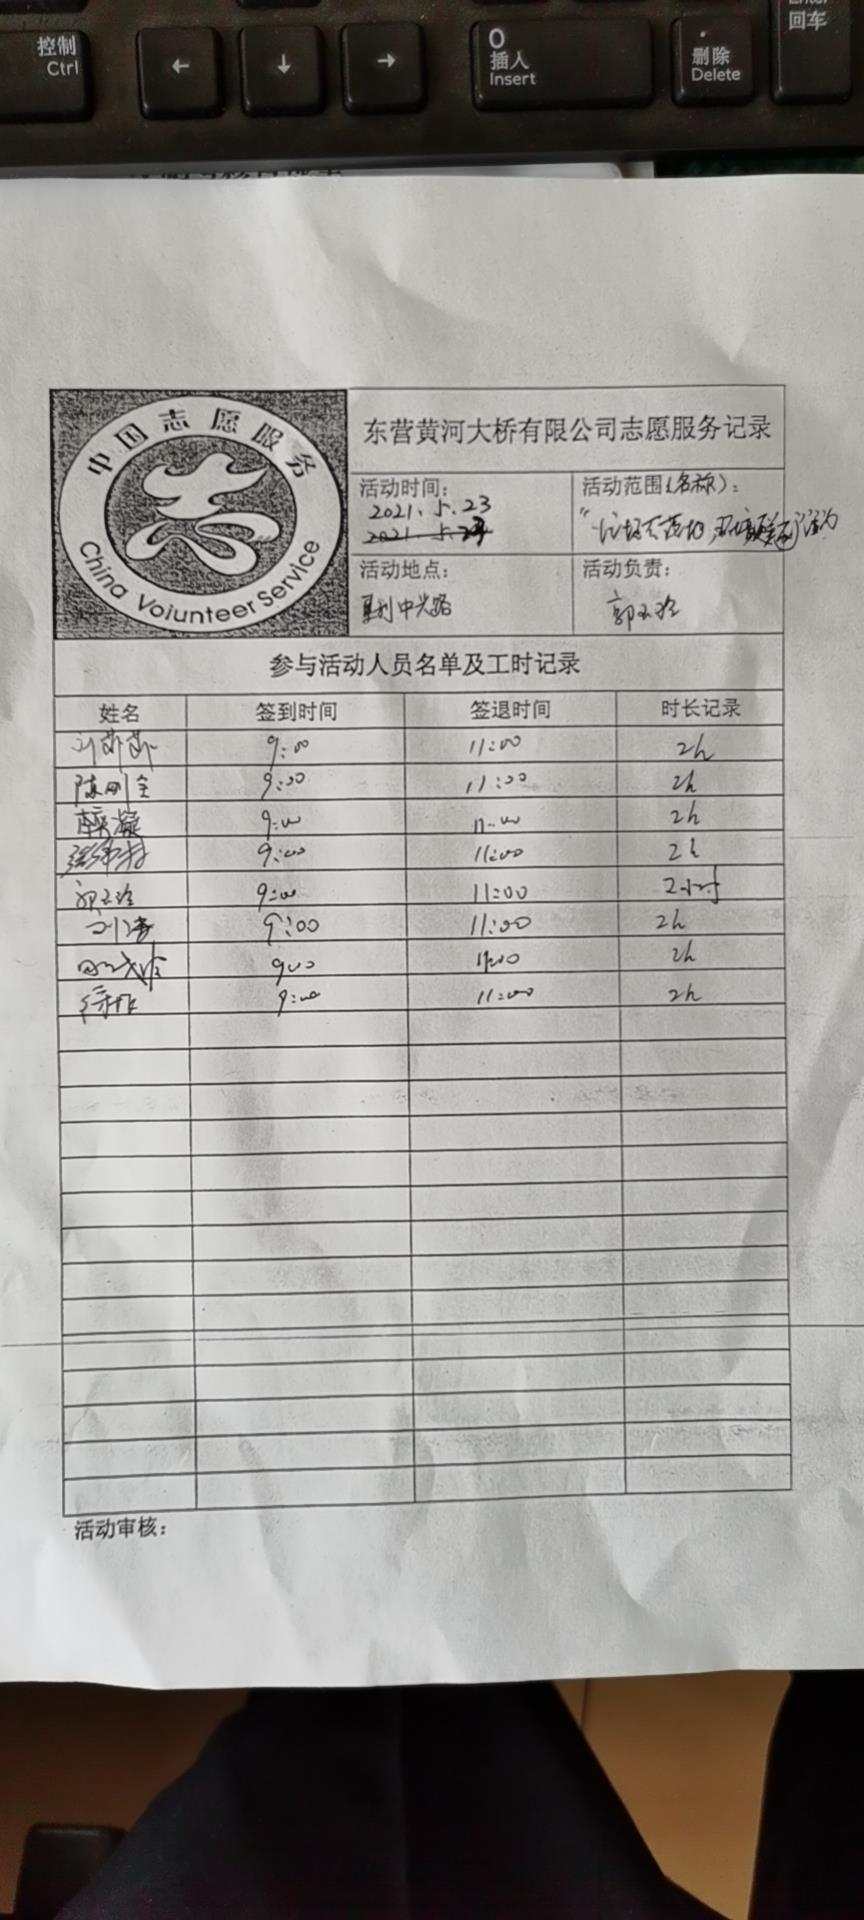 控制
Ctrl
←
↓
→
0
插入
Insert
.
删除
Delete
Enter
回车
中国志愿服务
China Volunteer Service
东营黄河大桥有限公司志愿服务记录
活动时间：
2021.5.23
活动范围(名称)：
垃圾不落地
活动
活动地点：
活动负责：
郭玉玲
参与活动人员名单及工时记录
姓名 签到时间 签退时间 时长记录
刘莎莎 9:00 11:00 2h
陈刚 9:00 11:00 2h
凝 9:00 11:00 2h
9:00 11:00 2h
郭玉玲 9:00 11:00 2小时
刘涛 9:00 11:00 2h
9:00 11:00 2h
9:00 11:00 2h
活动审核：